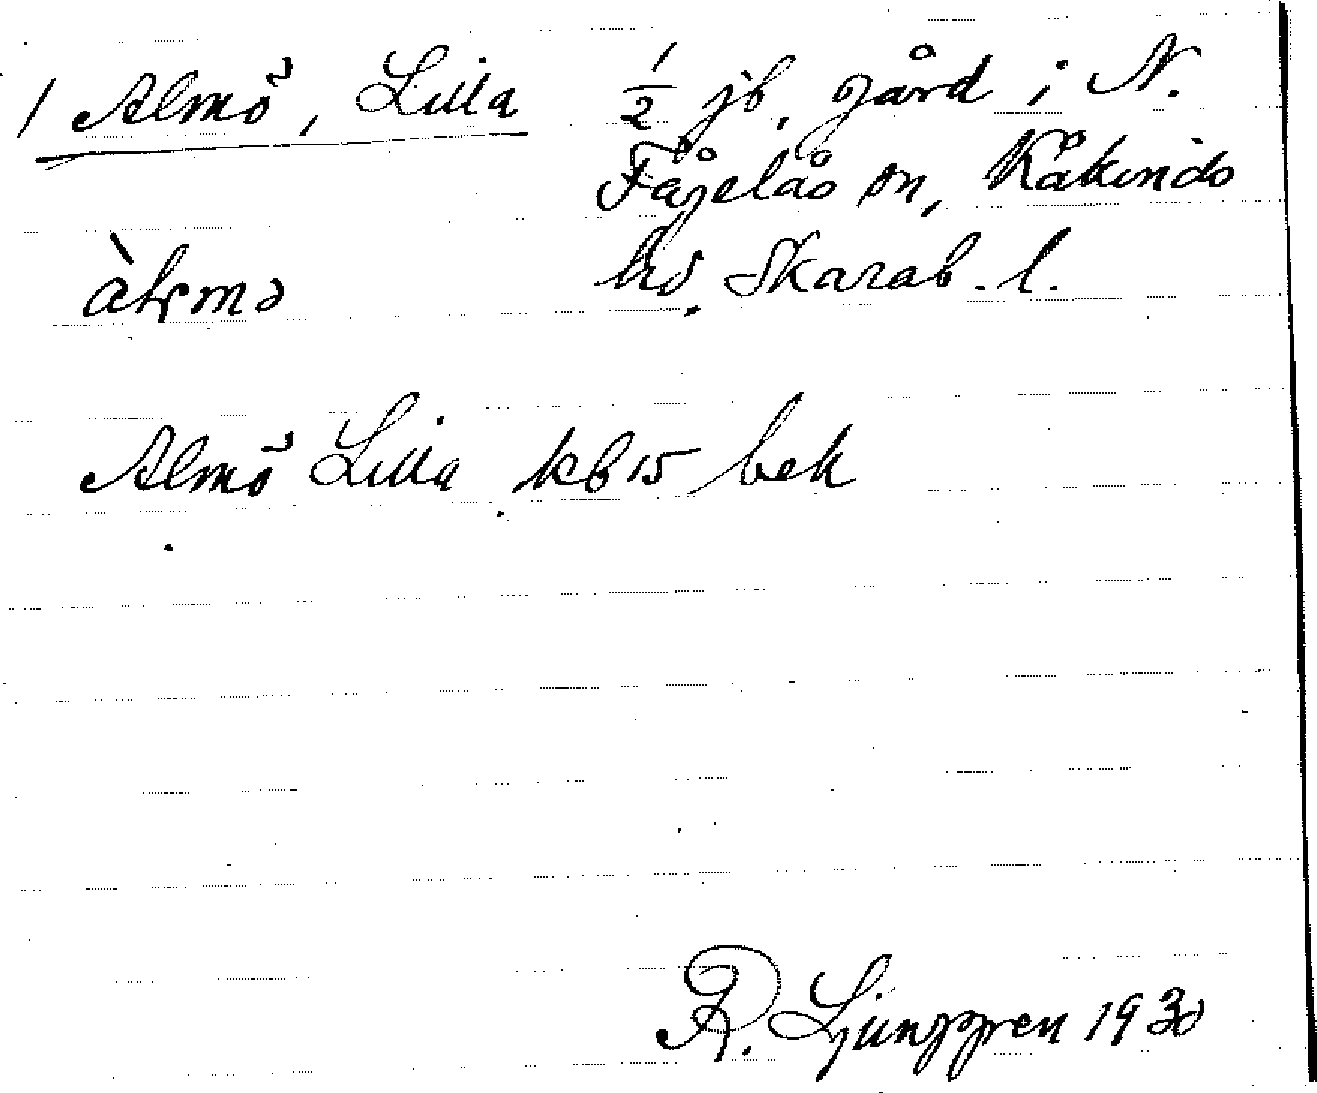 / Almö, Lilla 1/2 jb. gård i N.
Fågelås sn, Kåkinds
hd. Skarab. l.
àlmə
Almö Lilla kb 15 bek
R. Ljunggren 1930